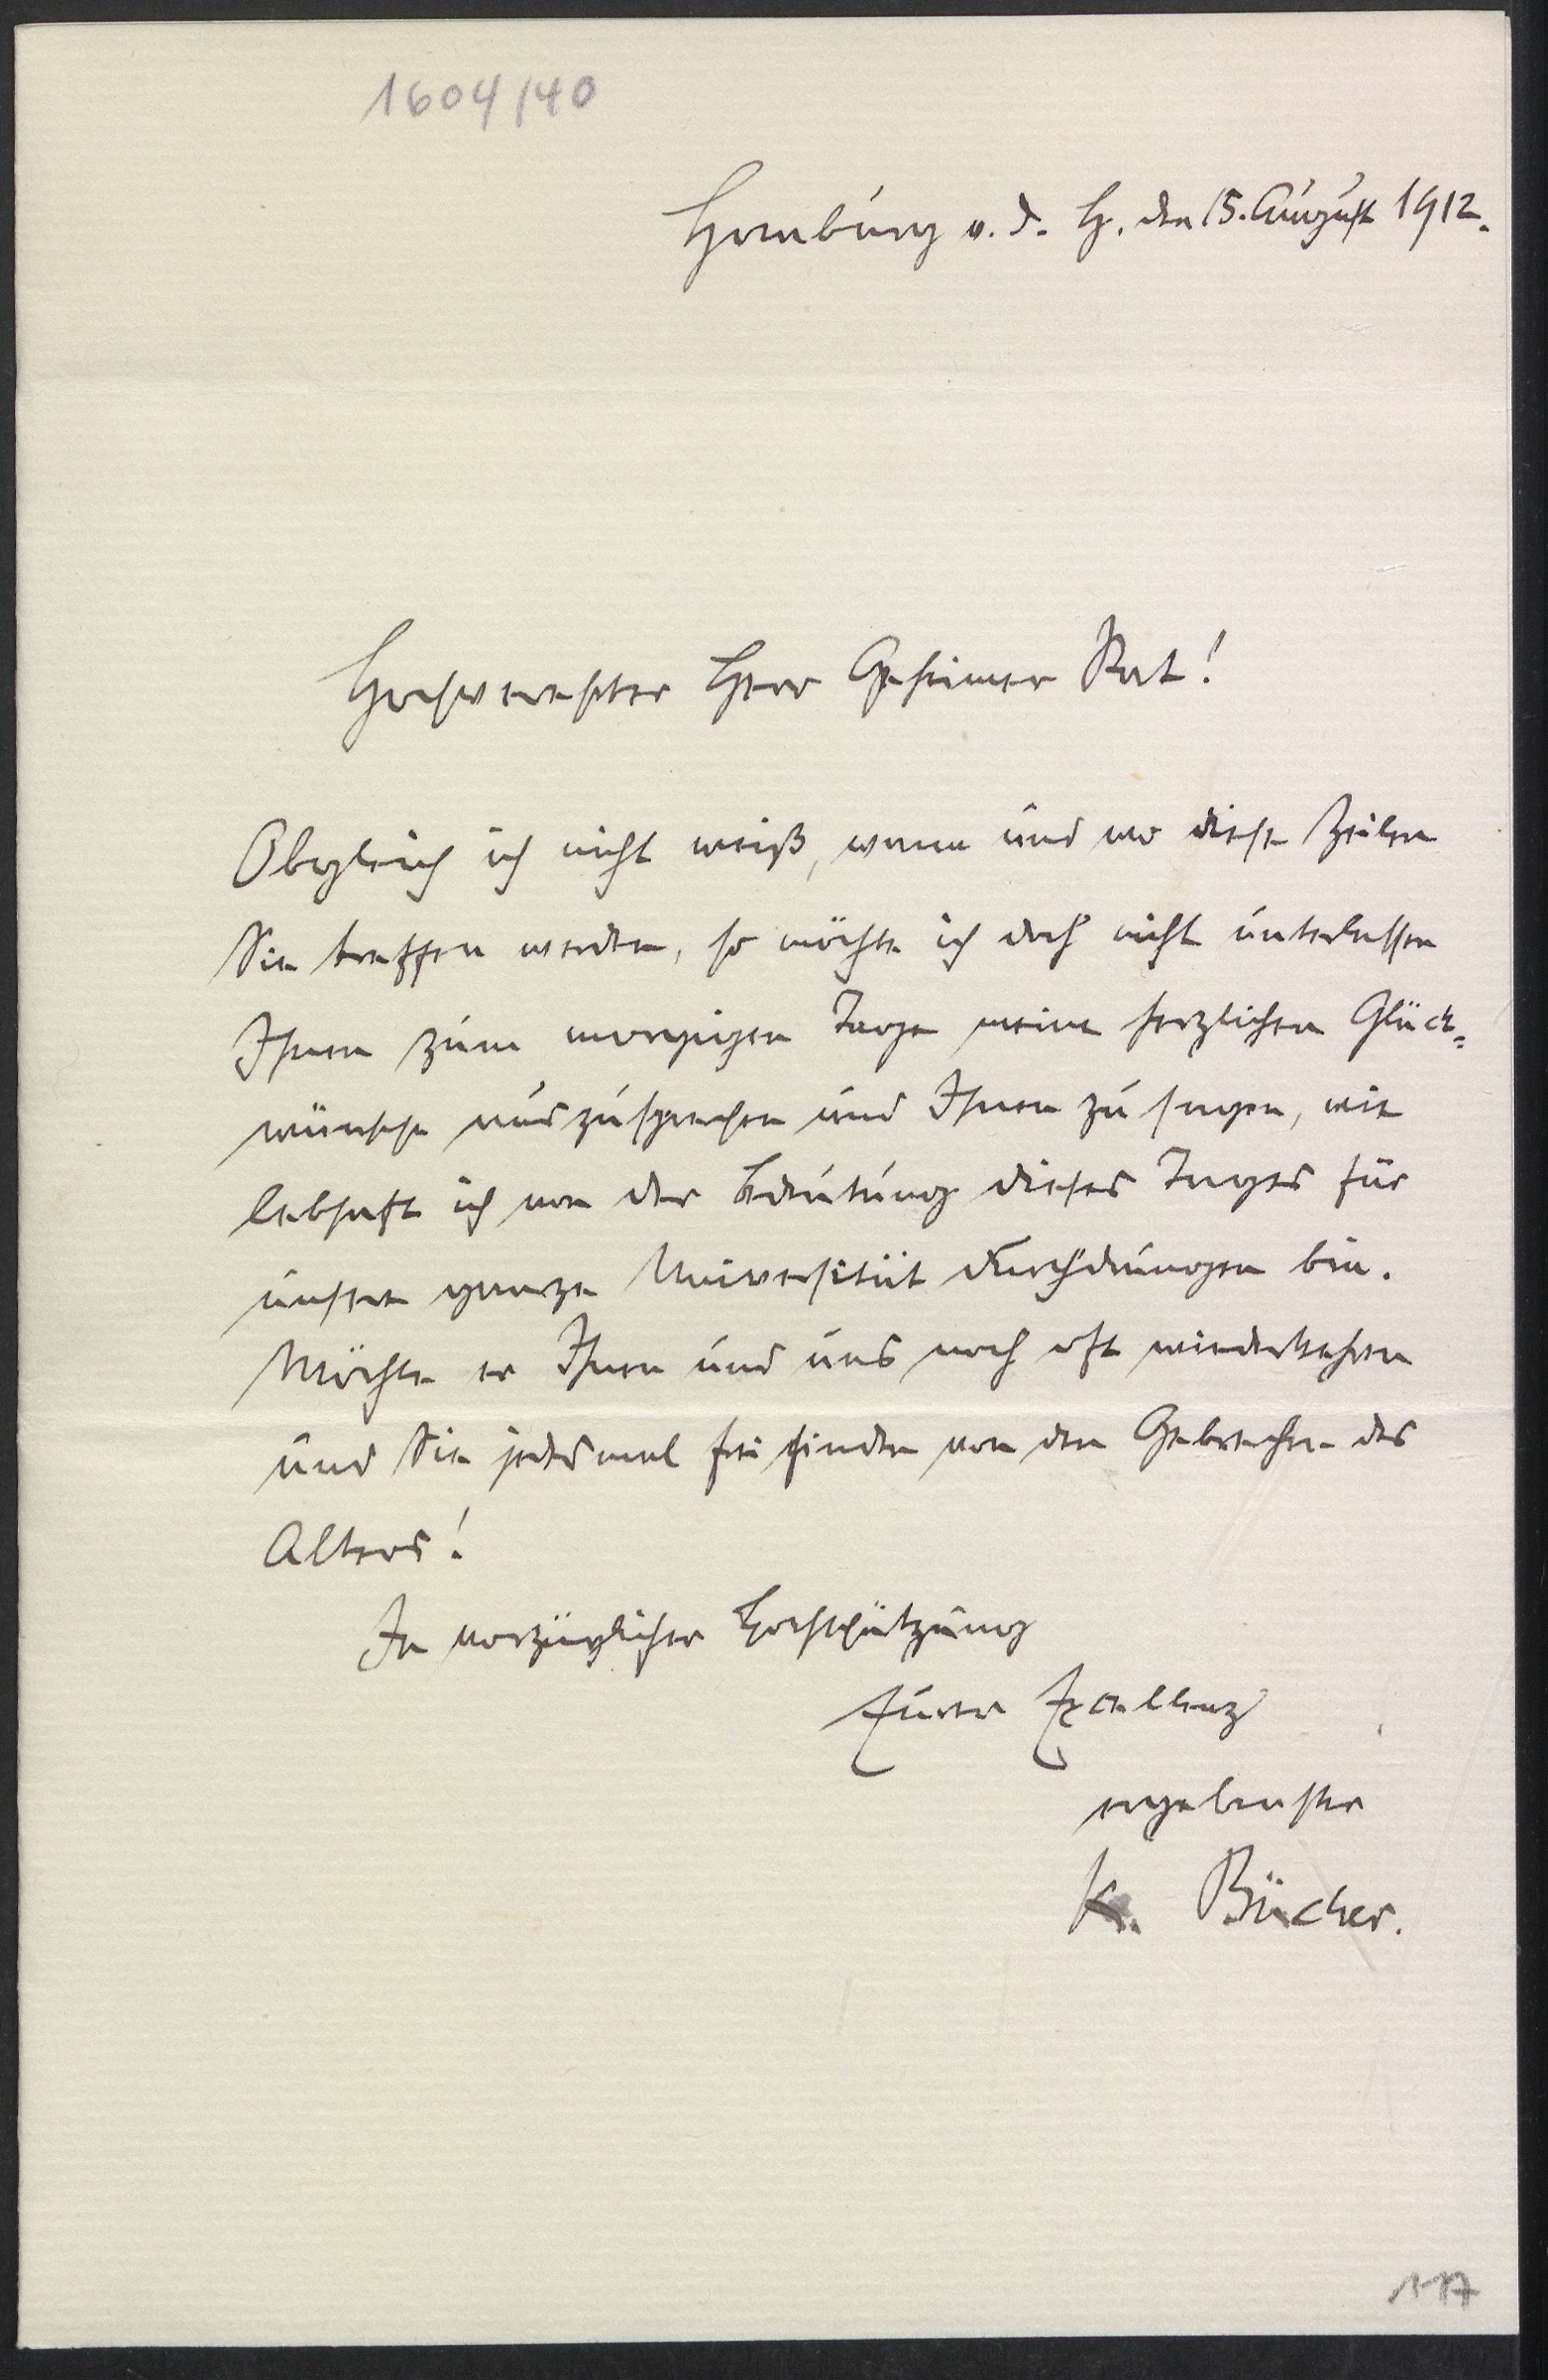 1604/40
Homburg v. d. H. den 15. August 1912.
Hochverehrter Herr Geheimer Rat!
Obgleich ich nicht weiß, wann und wo diese Zeilen
Sie treffen werden, so möchte ich doch nicht unterlassen
Ihnen zum morgigen Tage meine herzlichen Glück-
wünsche auszusprechen und Ihnen zu sagen, wie
lebhaft ich von der Bedeutung dieses Tages für
unsere ganze Universität durchdrungen bin.
Möchte er Ihnen und uns noch oft wiederkehren
und Sie jedesmal frei finden von den Gebrechen des
Alters!
In vorzüglicher Hochschätzung
Eurer Exzellenz
ergebenster
K. Bücher.
117